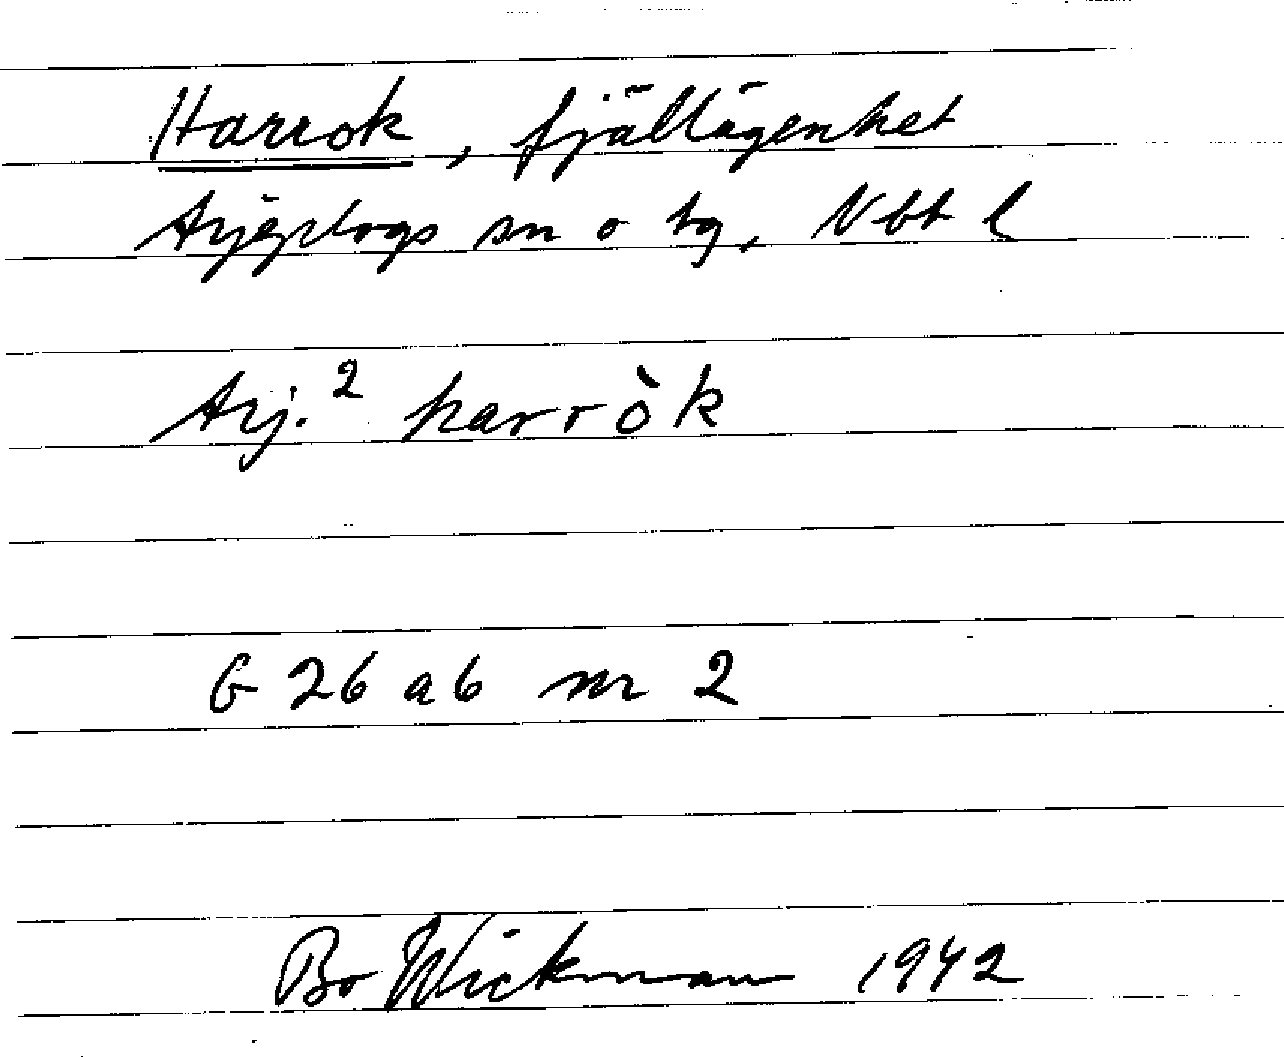 Harrok, fjällägenhet
Arjeplogs sn o tg, Vbt l
Arj.² harròk
G 26 a b nr 2
Bo Wickman 1942